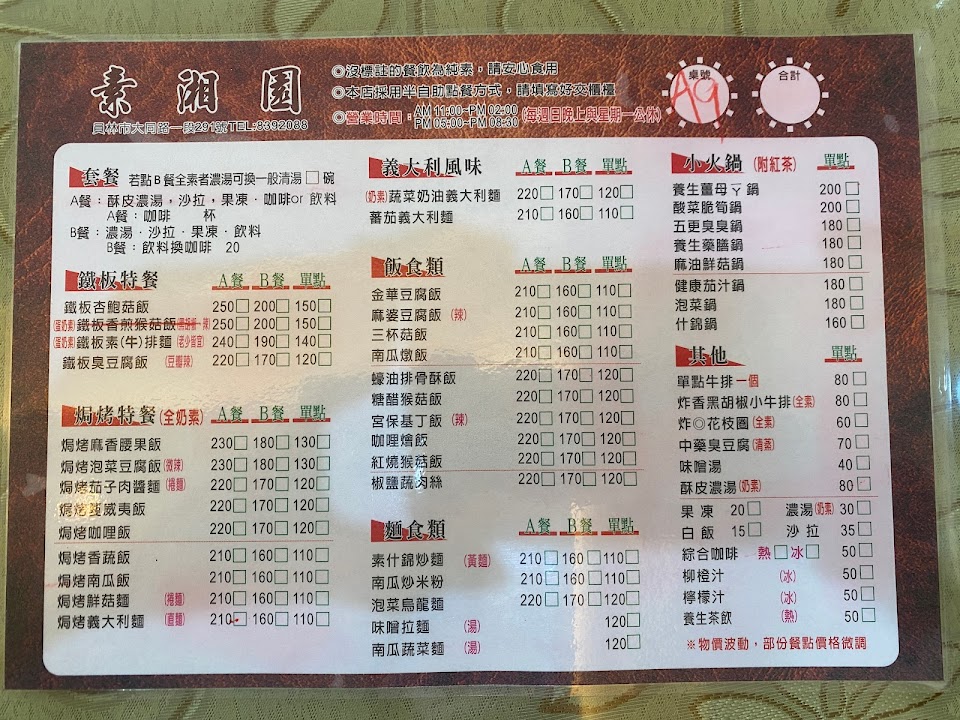 素湘園
員林市大同路一段291號TEL:8392088
◎沒標註的餐飲為純素，請安心食用
◎本店採用半自助點餐方式，請填寫好交櫃檯
◎營業時間：AM 11:00~PM 02:00
PM 05:00~PM 08:30 (每週日晚上與星期一公休)
桌號
A9
合計
套餐 若點B餐全素者濃湯可換一般清湯□碗
A餐：酥皮濃湯，沙拉，果凍．咖啡or 飲料
A餐：咖啡 杯
B餐：濃湯．沙拉．果凍．飲料
B餐：飲料換咖啡 20
鐵板特餐 A餐 B餐 單點
鐵板杏鮑菇飯 250□ 200□ 150□
(蛋奶素) 鐵板香煎猴菇飯 250□ 200□ 150□
(蛋奶素) 鐵板素(牛)排麵 (老少皆宜) 240□ 190□ 140□
鐵板臭豆腐飯 (豆瓣辣) 220□ 170□ 120□
焗烤特餐(全奶素) A餐 B餐 單點
焗烤麻香腰果飯 230□ 180□ 130□
焗烤泡菜豆腐飯(微辣) 230□ 180□ 130□
焗烤茄子肉醬麵(捲麵) 220□ 170□ 120□
焗烤夏威夷飯 220□ 170□ 120□
焗烤咖哩飯 220□ 170□ 120□
焗烤香蔬飯 210□ 160□ 110□
焗烤南瓜飯 210□ 160□ 110□
焗烤鮮菇麵 (捲麵) 210□ 160□ 110□
焗烤義大利麵 (直麵) 210 160□ 110□
義大利風味 A餐 B餐 單點
(奶素)蔬菜奶油義大利麵 220□ 170□ 120□
蕃茄義大利麵 210□ 160□ 110□
飯食類 A餐 B餐 單點
金華豆腐飯 210□ 160□ 110□
麻婆豆腐飯 (辣) 210□ 160□ 110□
三杯菇飯 210□ 160□ 110□
南瓜燉飯 210□ 160□ 110□
蠔油排骨酥飯 220□ 170□ 120□
糖醋猴菇飯 220□ 170□ 120□
宮保基丁飯 (辣) 220□ 170□ 120□
咖哩燴飯 220□ 170□ 120□
紅燒猴菇飯 220□ 170□ 120□
椒鹽蔬肉絲 220□ 170□ 120□
麵食類 A餐 B餐 單點
素什錦炒麵 (黃麵) 210□ 160□ 110□
南瓜炒米粉 210□ 160□ 110□
泡菜烏龍麵 220□ 170□ 120□
味噌拉麵 (湯) 120□
南瓜蔬菜麵 (湯) 120□
小火鍋 (附紅茶) 單點
養生薑母ㄚ鍋 200□
酸菜脆筍鍋 200□
五更臭臭鍋 180□
養生藥膳鍋 180□
麻油鮮菇鍋 180□
健康茄汁鍋 180□
泡菜鍋 180□
什錦鍋 160□
其他 單點
單點牛排一個 80□
炸香黑胡椒小牛排(全素) 80□
炸◎花枝圈(全素) 60□
中藥臭豆腐(清蒸) 70□
味噌湯 40□
酥皮濃湯(奶素) 80□
果凍 20□ 濃湯(奶素) 30□
白飯 15□ 沙拉 35□
綜合咖啡 熱□冰□ 50□
柳橙汁 (冰) 50□
檸檬汁 (冰) 50□
養生茶飲 (熱) 50□
※物價波動，部份餐點價格微調